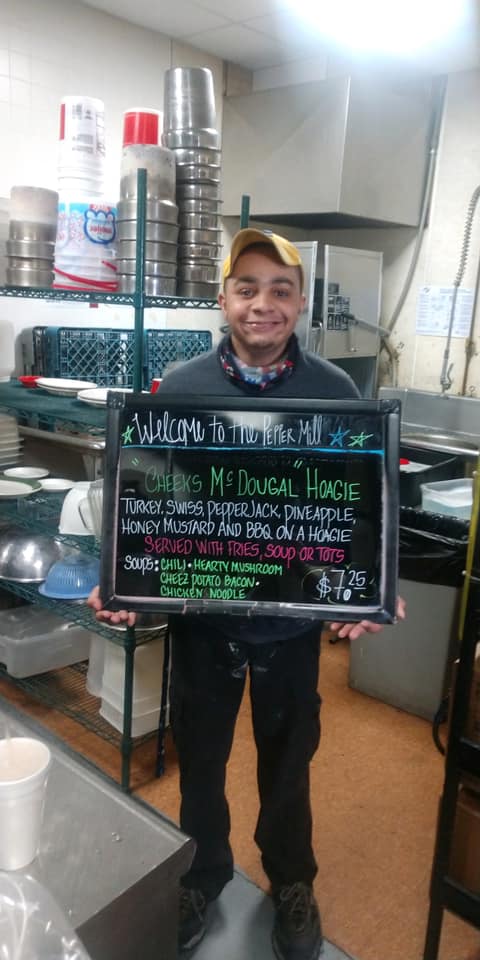 Welcome to the Pepper Mill
"Cheeks McDougal" Hoagie
Turkey, Swiss, Pepperjack, Pineapple,
Honey Mustard and BBQ on a Hoagie
Served with fries, soup or tots
Soups: Chili • Hearty Mushroom
Cheez Potato Bacon •
Chicken Noodle
$7.25